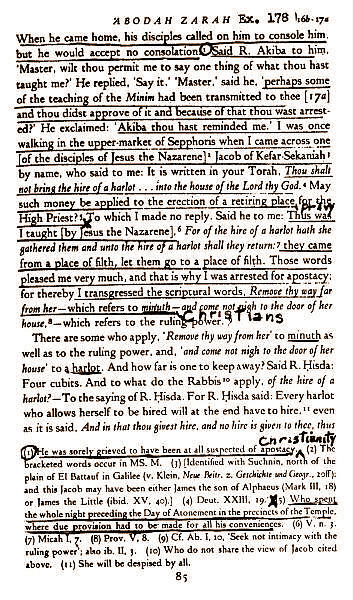 ABODAH ZARAH Ex. 178 16b-17a
When he came home, his disciples called on him to console him,
but he would accept no consolation. Said R. Akiba to him,
'Master, wilt thou permit me to say one thing of what thou hast
taught me?' He replied, 'Say it.' 'Master,' said he, 'perhaps some
of the teaching of the Minim had been transmitted to thee [17a]
and thou didst approve of it and because of that thou wast arrest-
ed?' He exclaimed: 'Akiba thou hast reminded me.' I was once
walking in the upper-market of Sepphoris when I came across one
[of the disciples of Jesus the Nazarene]² Jacob of Kefar-Sekaniah³
by name, who said to me: It is written in your Torah, Thou shalt
not bring the hire of a harlot . . . into the house of the Lord thy God.⁴ May
such money be applied to the erection of a retiring place for the
High Priest?⁵ To which I made no reply. Said he to me: Thus was
I taught [by Jesus the Nazarene],⁶ For of the hire of a harlot hath she
gathered them and unto the hire of a harlot shall they return:⁷ they came
from a place of filth, let them go to a place of filth. Those words
pleased me very much, and that is why I was arrested for apostacy;
for thereby I transgressed the scriptural words, Remove thy way far
from her—which refers to minuth—and come not nigh to the door of her
Christians
house,⁸—which refers to the ruling power.⁹
There are some who apply, 'Remove thy way from her' to minuth as
well as to the ruling power, and, 'and come not nigh to the door of her
house' to a harlot. And how far is one to keep away? Said R. Ḥisda:
Four cubits. And to what do the Rabbis¹⁰ apply, of the hire of a
harlot?—To the saying of R. Ḥisda. For R. Ḥisda said: Every harlot
who allows herself to be hired will at the end have to hire,¹¹ even
as it is said, And in that thou givest hire, and no hire is given to thee, thus
Christianity
(1) He was sorely grieved to have been at all suspected of apostacy. (2) The
bracketed words occur in MS. M. (3) [Identified with Suchnin, north of the
plain of El Battauf in Galilee (v. Klein, Neue Beitr. z. Geschichte und Geogr., 20ff);
and this Jacob may have been either James the son of Alphaeus (Mark III, 18)
or James the Little (ibid. XV, 40).] (4) Deut. XXIII, 19. (5) Who spent
the whole night preceding the Day of Atonement in the precincts of the Temple,
where due provision had to be made for all his conveniences. (6) V. n. 3.
(7) Micah I, 7. (8) Prov. V, 8. (9) Cf. Ab. I, 10, 'Seek not intimacy with the
ruling power'; also ib. II, 3. (10) Who do not share the view of Jacob cited
above. (11) She will be despised by all.
85